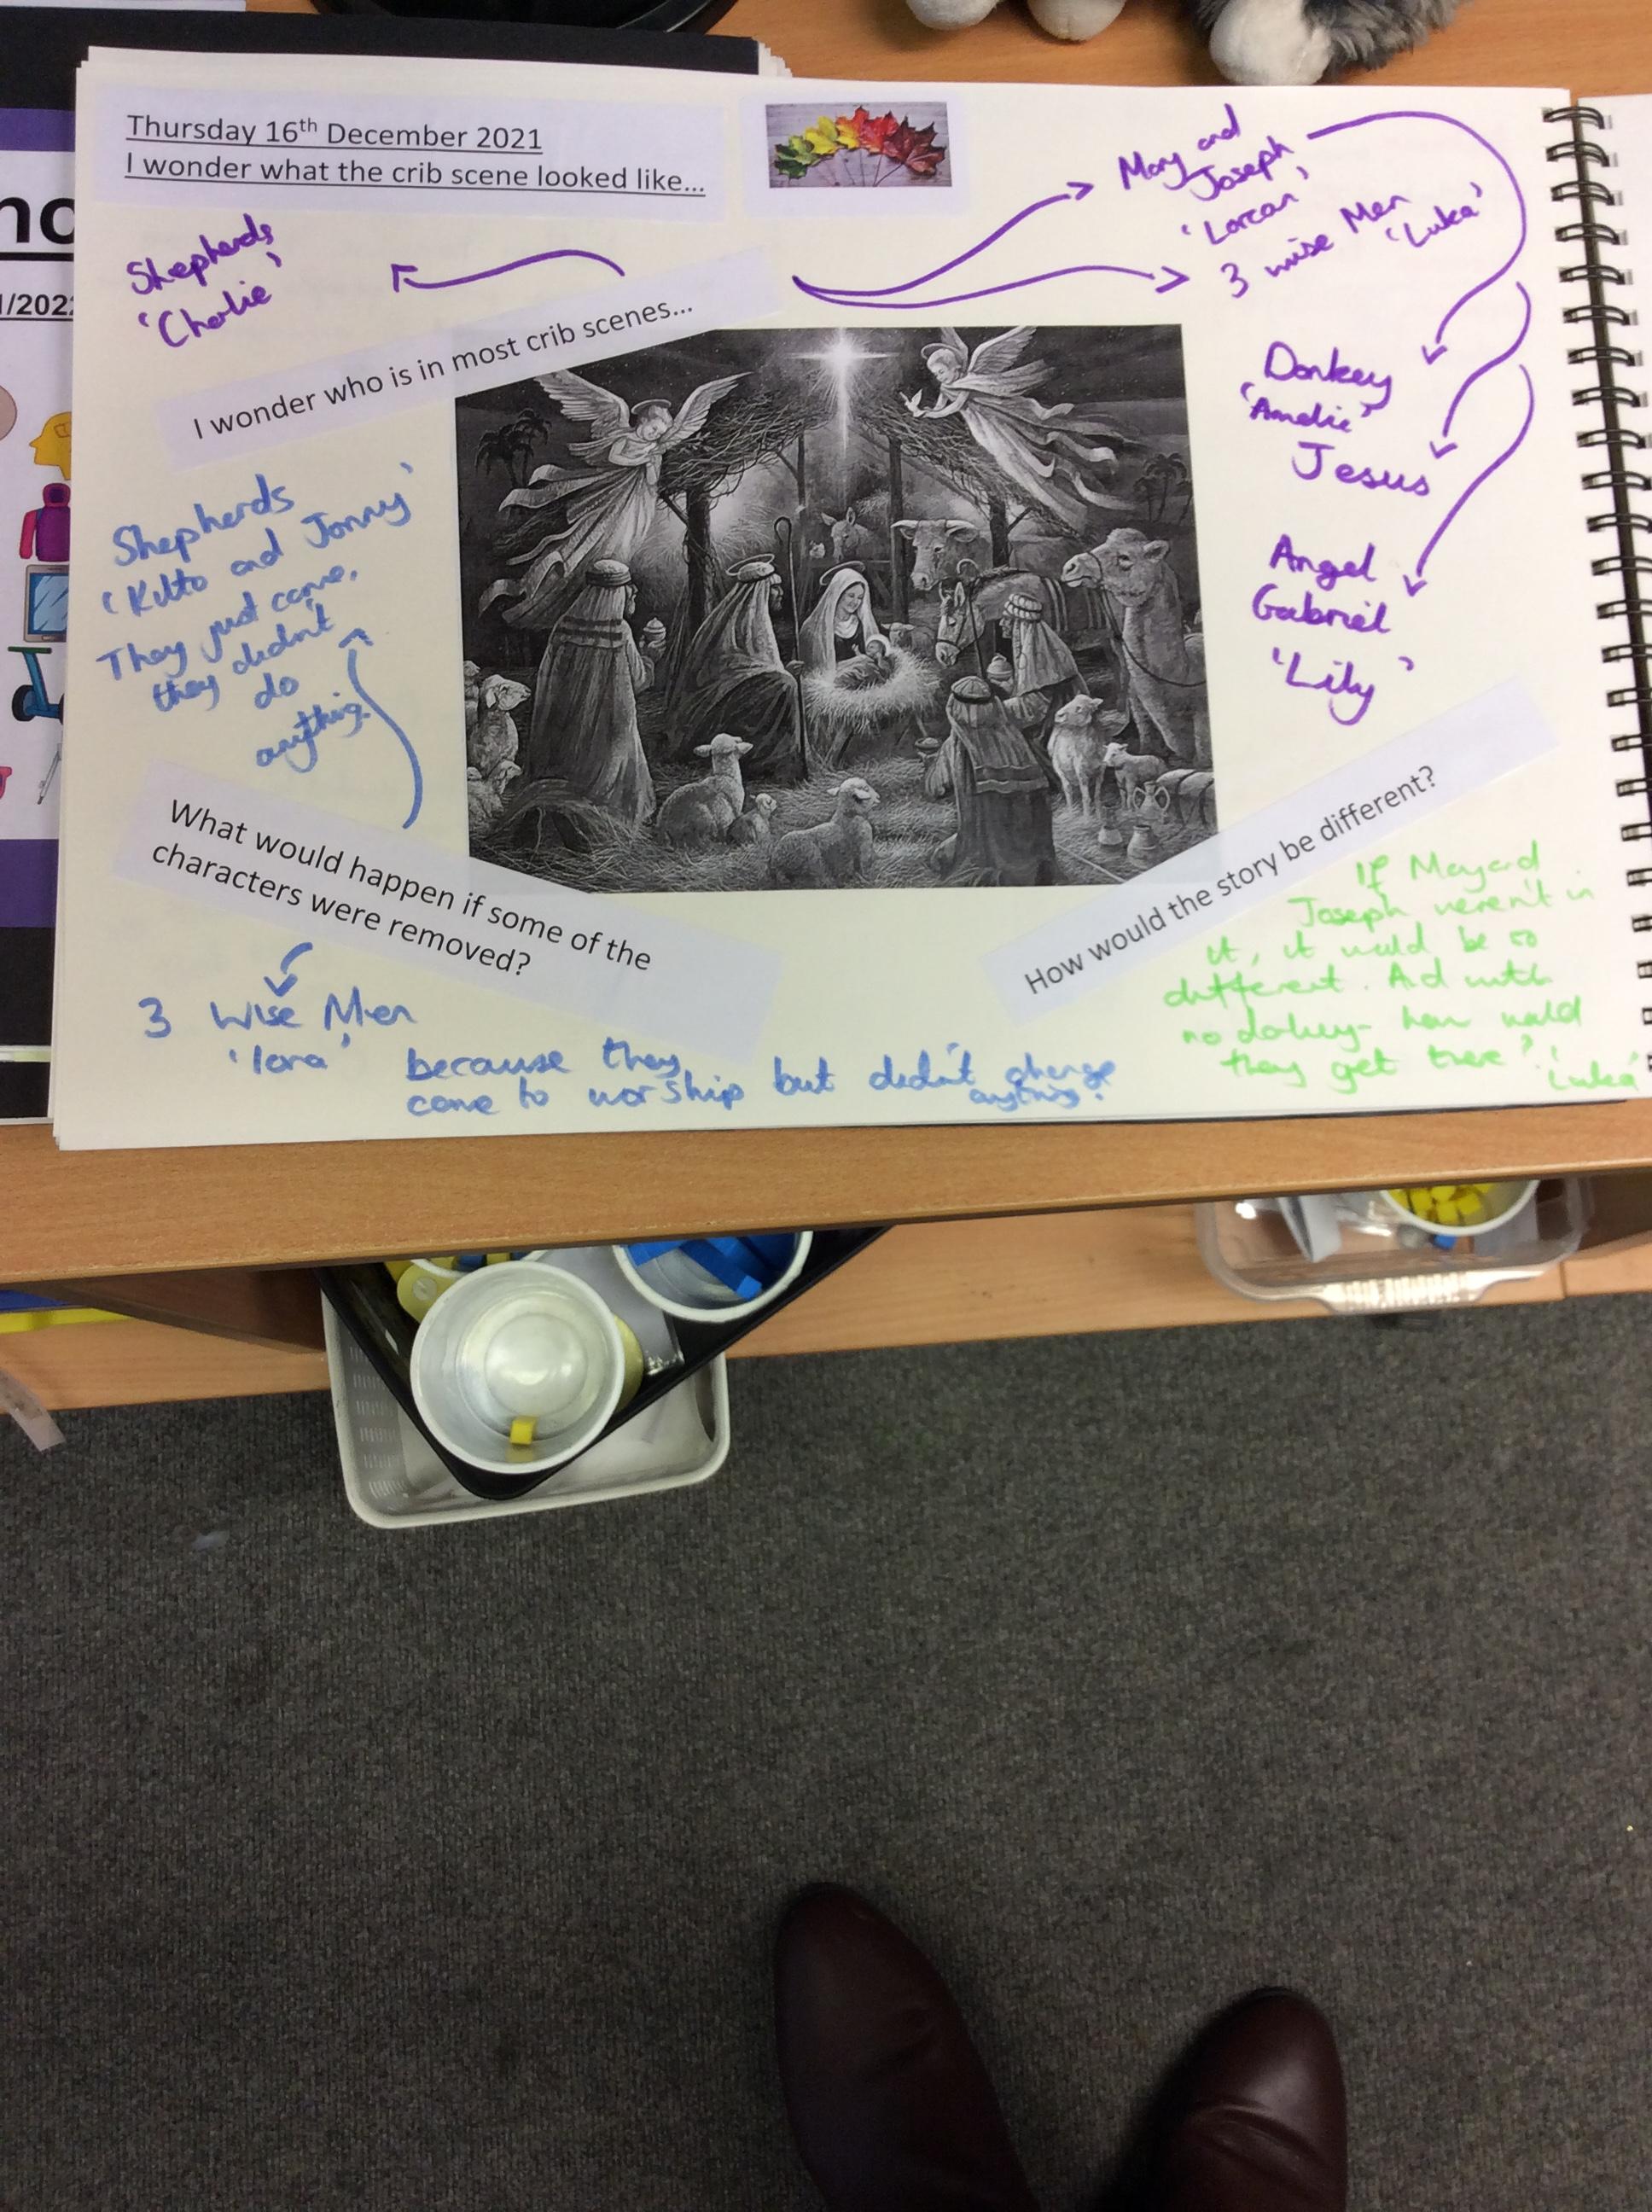 Thursday 16th December 2021
I wonder what the crib scene looked like...
no
1/202
Shepherds
'Charlie'
I wonder who is in most crib scenes...
Mary and
Joseph
'Lorcan'
3 wise Men
'Luka'
Donkey
'Amelie'
Jesus
Angel
Gabriel
'Lily'
Shepherds
and Jonny'
They just came,
they didn't
do
anything.
What would happen if some of the
characters were removed?
3 Wise Men
'Iona'
because they
come to worship but didn't change
anything.
How would the story be different?
If Mary and
Joseph weren't in
it, it would be so
different. And with
no donkey - how would
they get there?
'Luka'